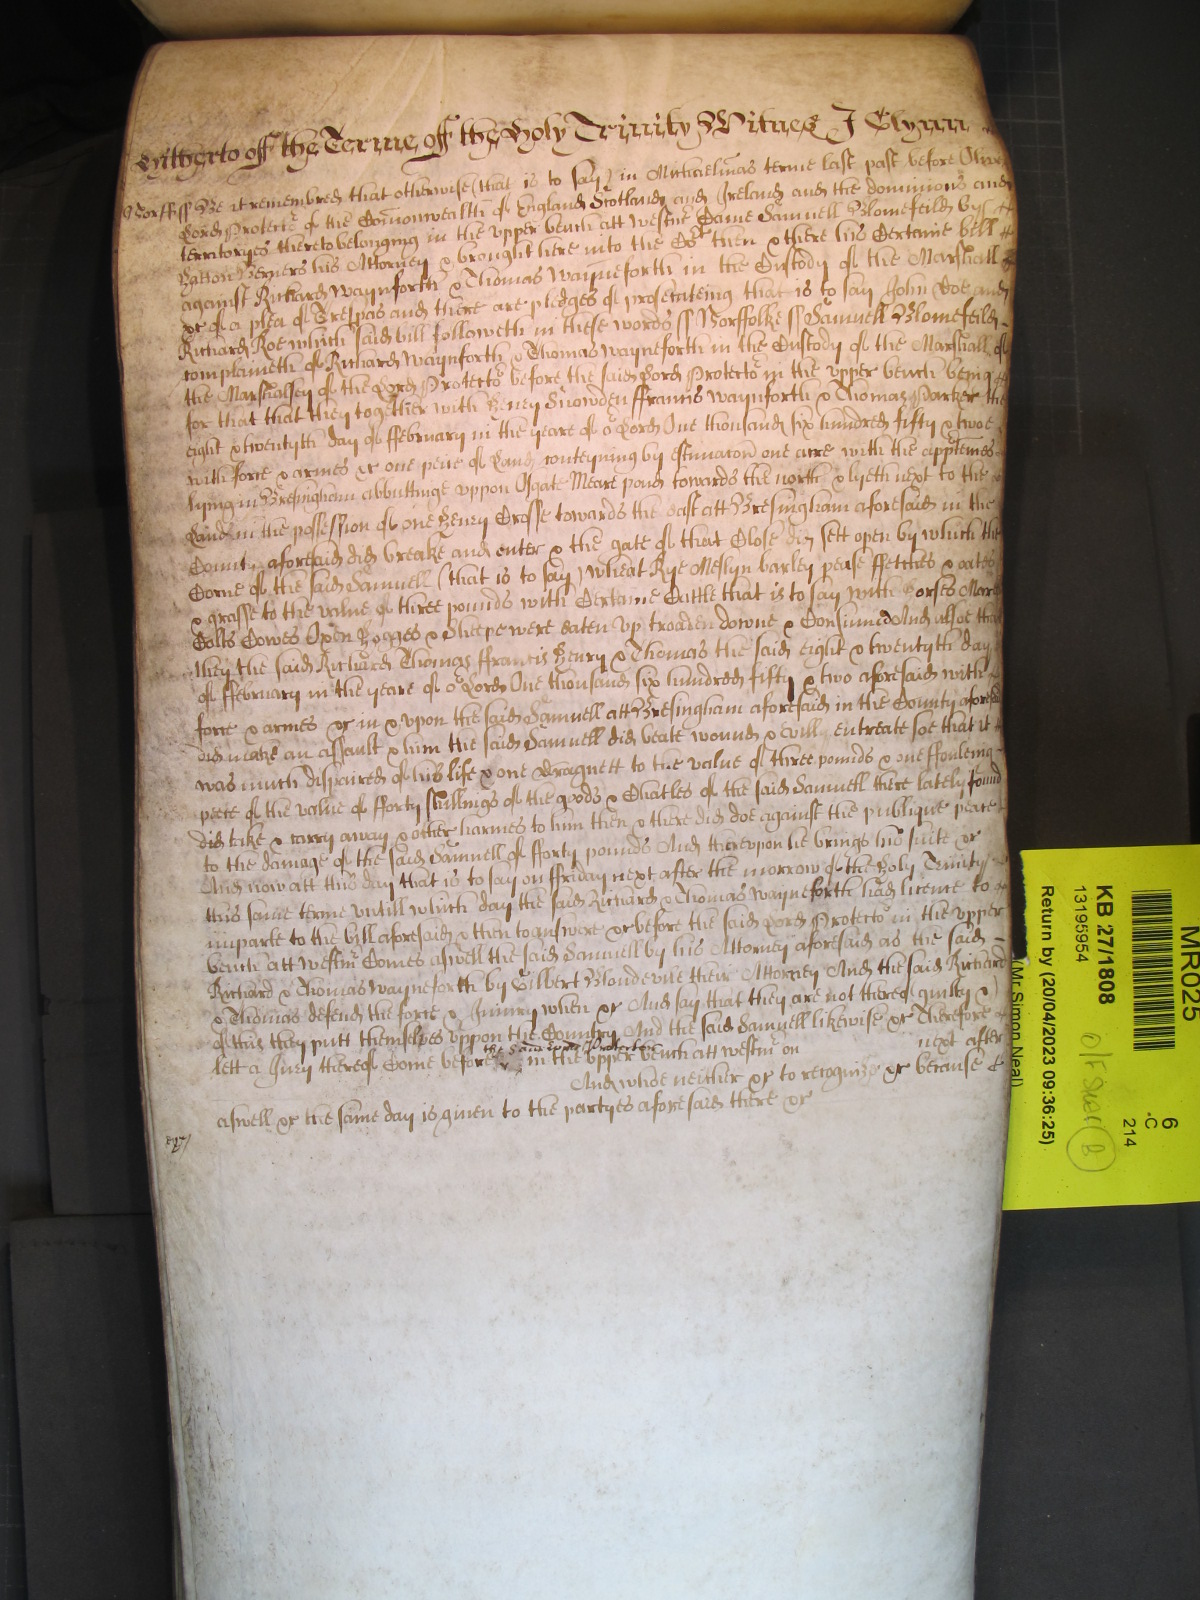 hitherto off the Terme off the Holy Trinity Witnes J Glynn
Norff ss Be it remembred that otherwise (that is to say) in Michaelmas terme last past before Oliver
Lord Protector of the Comonwealth of England Scotland and Ireland and the dominions and
territoryes thereto belonging in the upper bench att Westmr Came Samuell Blomefeild by
Berners his Attorney & brought here into the Cort then & there his Certaine bill
against Richard Waynforth & Thomas Wayneforth in the Custody of the Marshall
&c of a plea of Trespas and there are pledges of prosecuteing that is to say John Doe and
Richard Roe which said bill followeth in these words ss Norffolke ss Samuell Blomefeild
complaineth of Richard Waynforth & Thomas Wayneforth in the Custody of the Marshall of
the Marshalsey of the Lord Protector before the said Lord Protector in the upper bench being
for that that they together with Henry Snowden ffrancis Waynforth & Thomas Parker the
eight & twentyth day of ffebruary in the yeare of or Lord One thousand six hundred fifty & twoe
with force & armes &c one peice of Land conteyning by estimacon one acre with the apptences
lying in Bresingham abbuttinge uppon Osgate Meare pond towards the north & lyeth next to the
Land in the possession of one Henry Crosse towards the east att Bresingham aforesaid in the
County aforesaid did breake and enter & the gate of that Close did sett open by which the
Corne of the said Samuell (that is to say) wheat Rye Meslyn barley pease ffetches & oates
& grasse to the value of three pounds with Certaine Cattle that is to say with horses Mares
Colts Cowes Oxen Hogges & Sheepe were eaten up troaden downe & Consumed And alsoe that
they the said Richard Thomas ffrancis Henry & Thomas the said eight & twentyth day
of ffebruary in the yeare of or Lord One thousand six hundred fifty & two aforesaid with
force & armes &c in & upon the said Samuell att Bresingham aforesaid in the County aforesaid
did make an assault & him the said Samuell did beate wound & evill entreate soe that it
was much dispaired of his life & one Dragnett to the value of three pounds & one ffowleing
peece of the value of fforty shillings of the goods & Chatles of the said Samuell there lately found
did take & carry away & other harmes to him then & there did doe against the publique peace
to the damage of the said Samuell of fforty pounds And thereupon he brings his suite &c
And now att this day that is to say on ffriday next after the morrow of the Holy Trinity
this same terme untill which day the said Richard & Thomas Wayneforth had licence to
imparle to the bill aforesaid & then to answere &c before the said Lord Protector in the upper
bench att Westmr Comes aswell the said Samuell by his Attorney aforesaid as the said
Richard & Thomas Wayneforth by Gilbert Blondevile their Attorney And the said Richard
& Thomas defend the force & Injury when &c And say that they are not thereof guilty &
of this they putt themselves uppon the Country And the said Samuell likewise &c Therefore
the said Lord Protector
lett a Jury thereof Come before in the upper bench att westmr on next after
And whoe neither &c to recognize &c because
aswell &c the same day is given to the partyes aforesaid there &c
MR025
KB 27/1808
13195954
(Mr Simon Neal)
Return by (20/04/2023 09:36:25)
6
-C
214
B